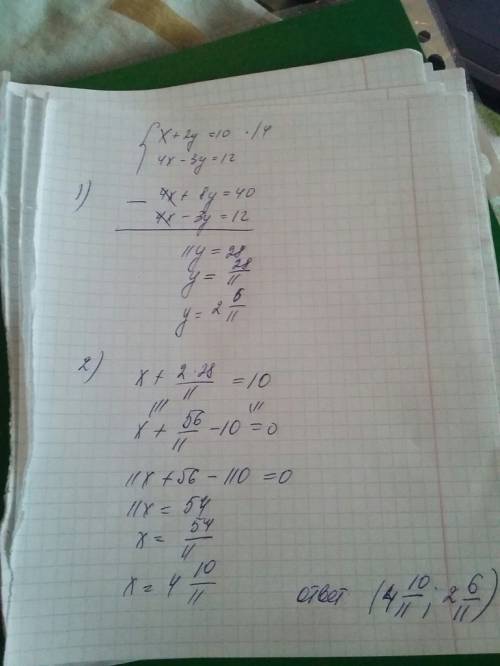 { x + 2y = 10 · |4
4x − 3y = 12
1)
− 4x + 8y = 40
4x − 3y = 12
11y = 28
y = 28/11
y = 2 6/11
2)
x + 2·28/11 = 10
/11 /11
x + 56/11 − 10 = 0
11x + 56 − 110 = 0
11x = 54
x = 54/11
x = 4 10/11
ответ (4 10/11; 2 6/11)